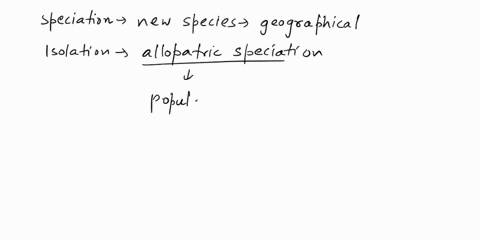 Speciation → new species → geographical
Isolation → allopatric speciation
↓
popul.